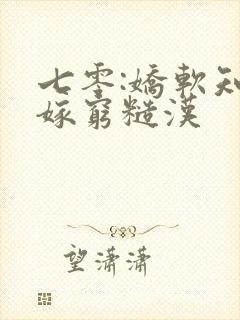 七零:嬌軟知
嫁窮糙漢
望瀟瀟